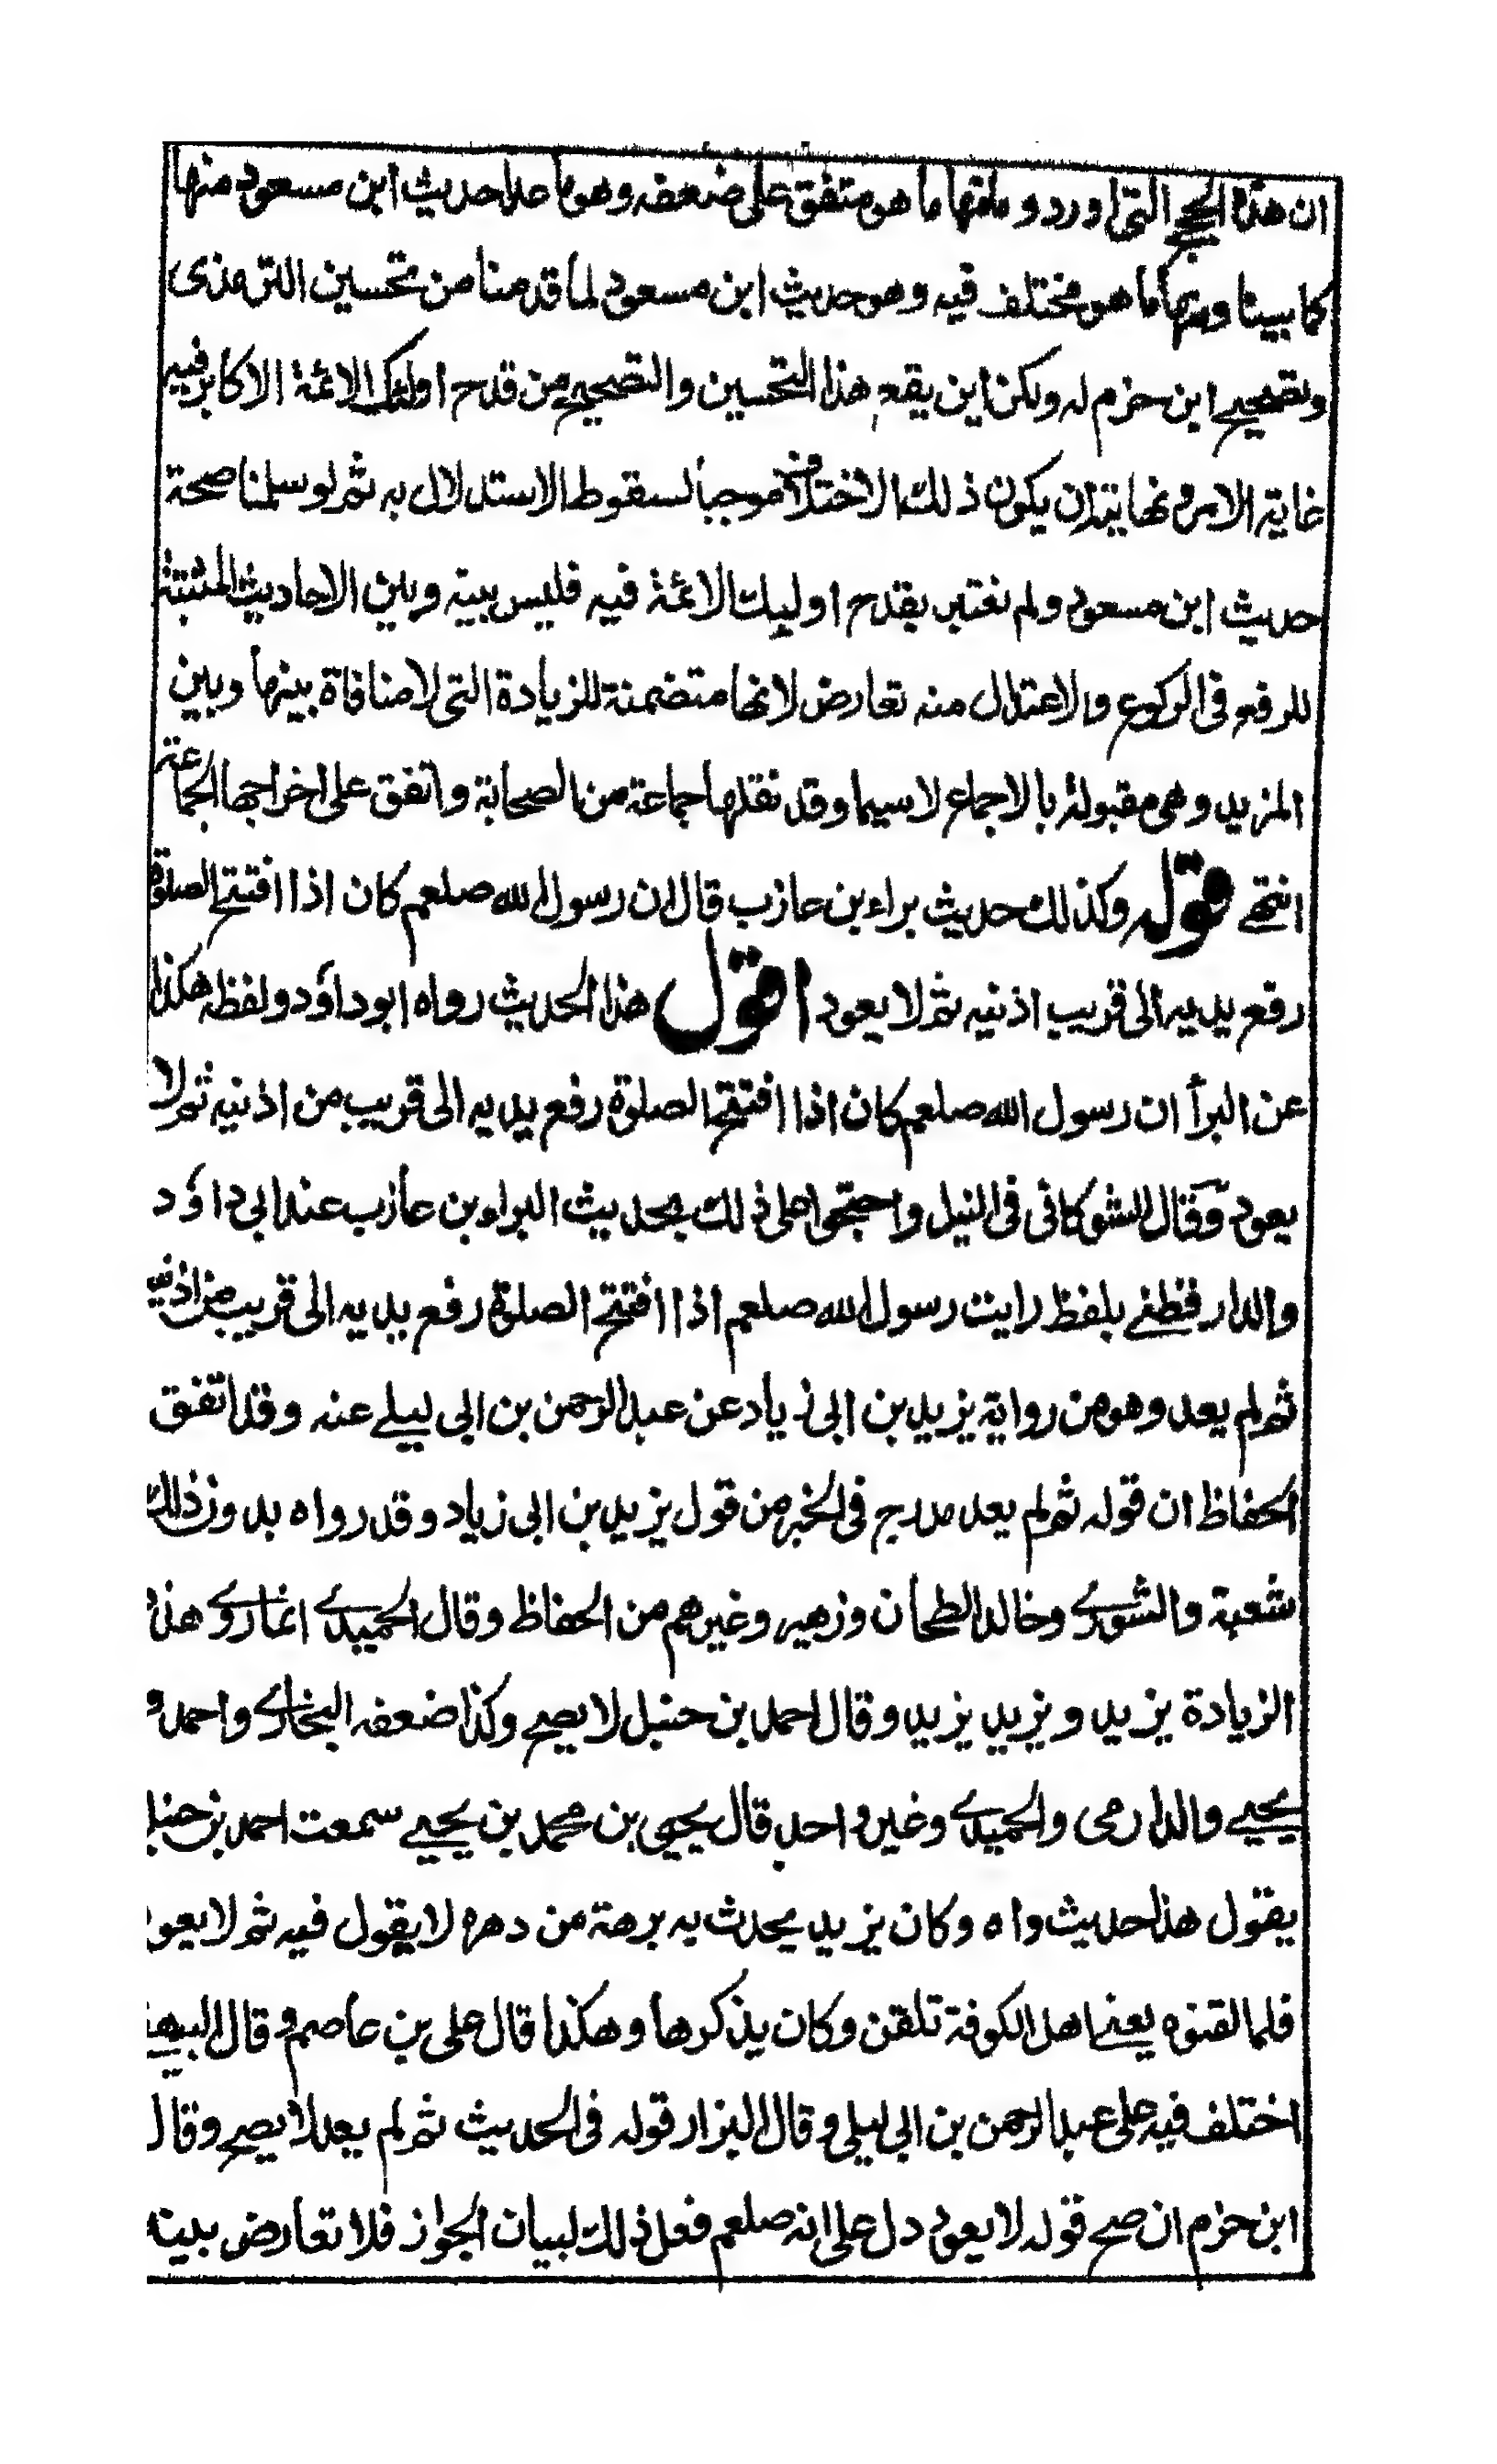 ان هذه الحجج التى اوردوها منها ما هو متفق على ضعفه وهو ما عدا حديث ابن مسعود منها
كما بينا ومنها ما هو مختلف فيه وهو حديث ابن مسعود لما قدمنا من تحسين الترمذى
وتصحيح ابن حزم له ولكن اين يقع هذا التحسين والتصحيح من قدح اولئك الائمة الاكابر فيه
غاية الامر ونهايته ان يكون ذلك الاختلاف موجبا لسقوط الاستدلال به ثم لو سلمنا صحة
حديث ابن مسعود ولم نعتبر بقدح اوليك الائمة فيه فليس بينه وبين الاحاديث المثبتة
للرفع فى الركوع والاعتدال منه تعارض لانها متضمنة للزيادة التى لا منافاة بينها وبين
المزيد وهى مقبولة بالاجماع لا سيما وقد نقلها جماعة من الصحابة واتفق على اخراجها الجماعة
انتهے قوله وكذلك حديث براء بن عازب قال ان رسول الله صلعم كان اذا افتتح الصلوة
رفع يديه الى قريب اذنيه ثم لا يعود اقول هذا الحديث رواه ابو داؤد ولفظه هكذا
عن البرأ ان رسول الله صلعم كان اذا افتتح الصلوة رفع يديه الى قريب من اذنيه ثم لا
يعود وقال الشوكانى فى النيل واحتجوا على ذلك بحديث البراء بن عازب عند ابى داؤد
والدارقطنے بلفظ رايت رسول الله صلعم اذا افتتح الصلوة رفع يديه الى قريب من اذنيه
ثم لم يعد وهو من رواية يزيد بن ابى زياد عن عبد الرحمن بن ابى ليلے عنه وقد اتفق
الحفاظ ان قوله ثم لم يعد مدرج فى الخبر من قول يزيد بن ابى زياد وقد رواه بدون ذلك
شعبة والثورے وخالد الطحان وزهير وغيرهم من الحفاظ وقال الحميدے انما روے هذه
الزيادة يزيد ويزيد يزيد وقال احمد بن حنبل لا يصح وكذا ضعفه البخارے واحمد و
يحيے والدارمى والحميدے وغير واحد قال يحيى بن محمد بن يحيے سمعت احمد بن حنبل
يقول هذا حديث واه وكان يزيد يحدث به برهة من دهره لا يقول فيه ثم لا يعود
فلما لقنوه يعنے اهل الكوفة تلقن وكان يذكرها وهكذا قال على بن عاصم وقال البيهقے
اختلف فيه على عبد الرحمن بن ابى ليلى وقال البزار قوله فى الحديث ثم لم يعد لا يصح وقال
ابن حزم ان صح قوله لا يعود دل على انه صلعم فعل ذلك لبيان الجواز فلا تعارض بينه